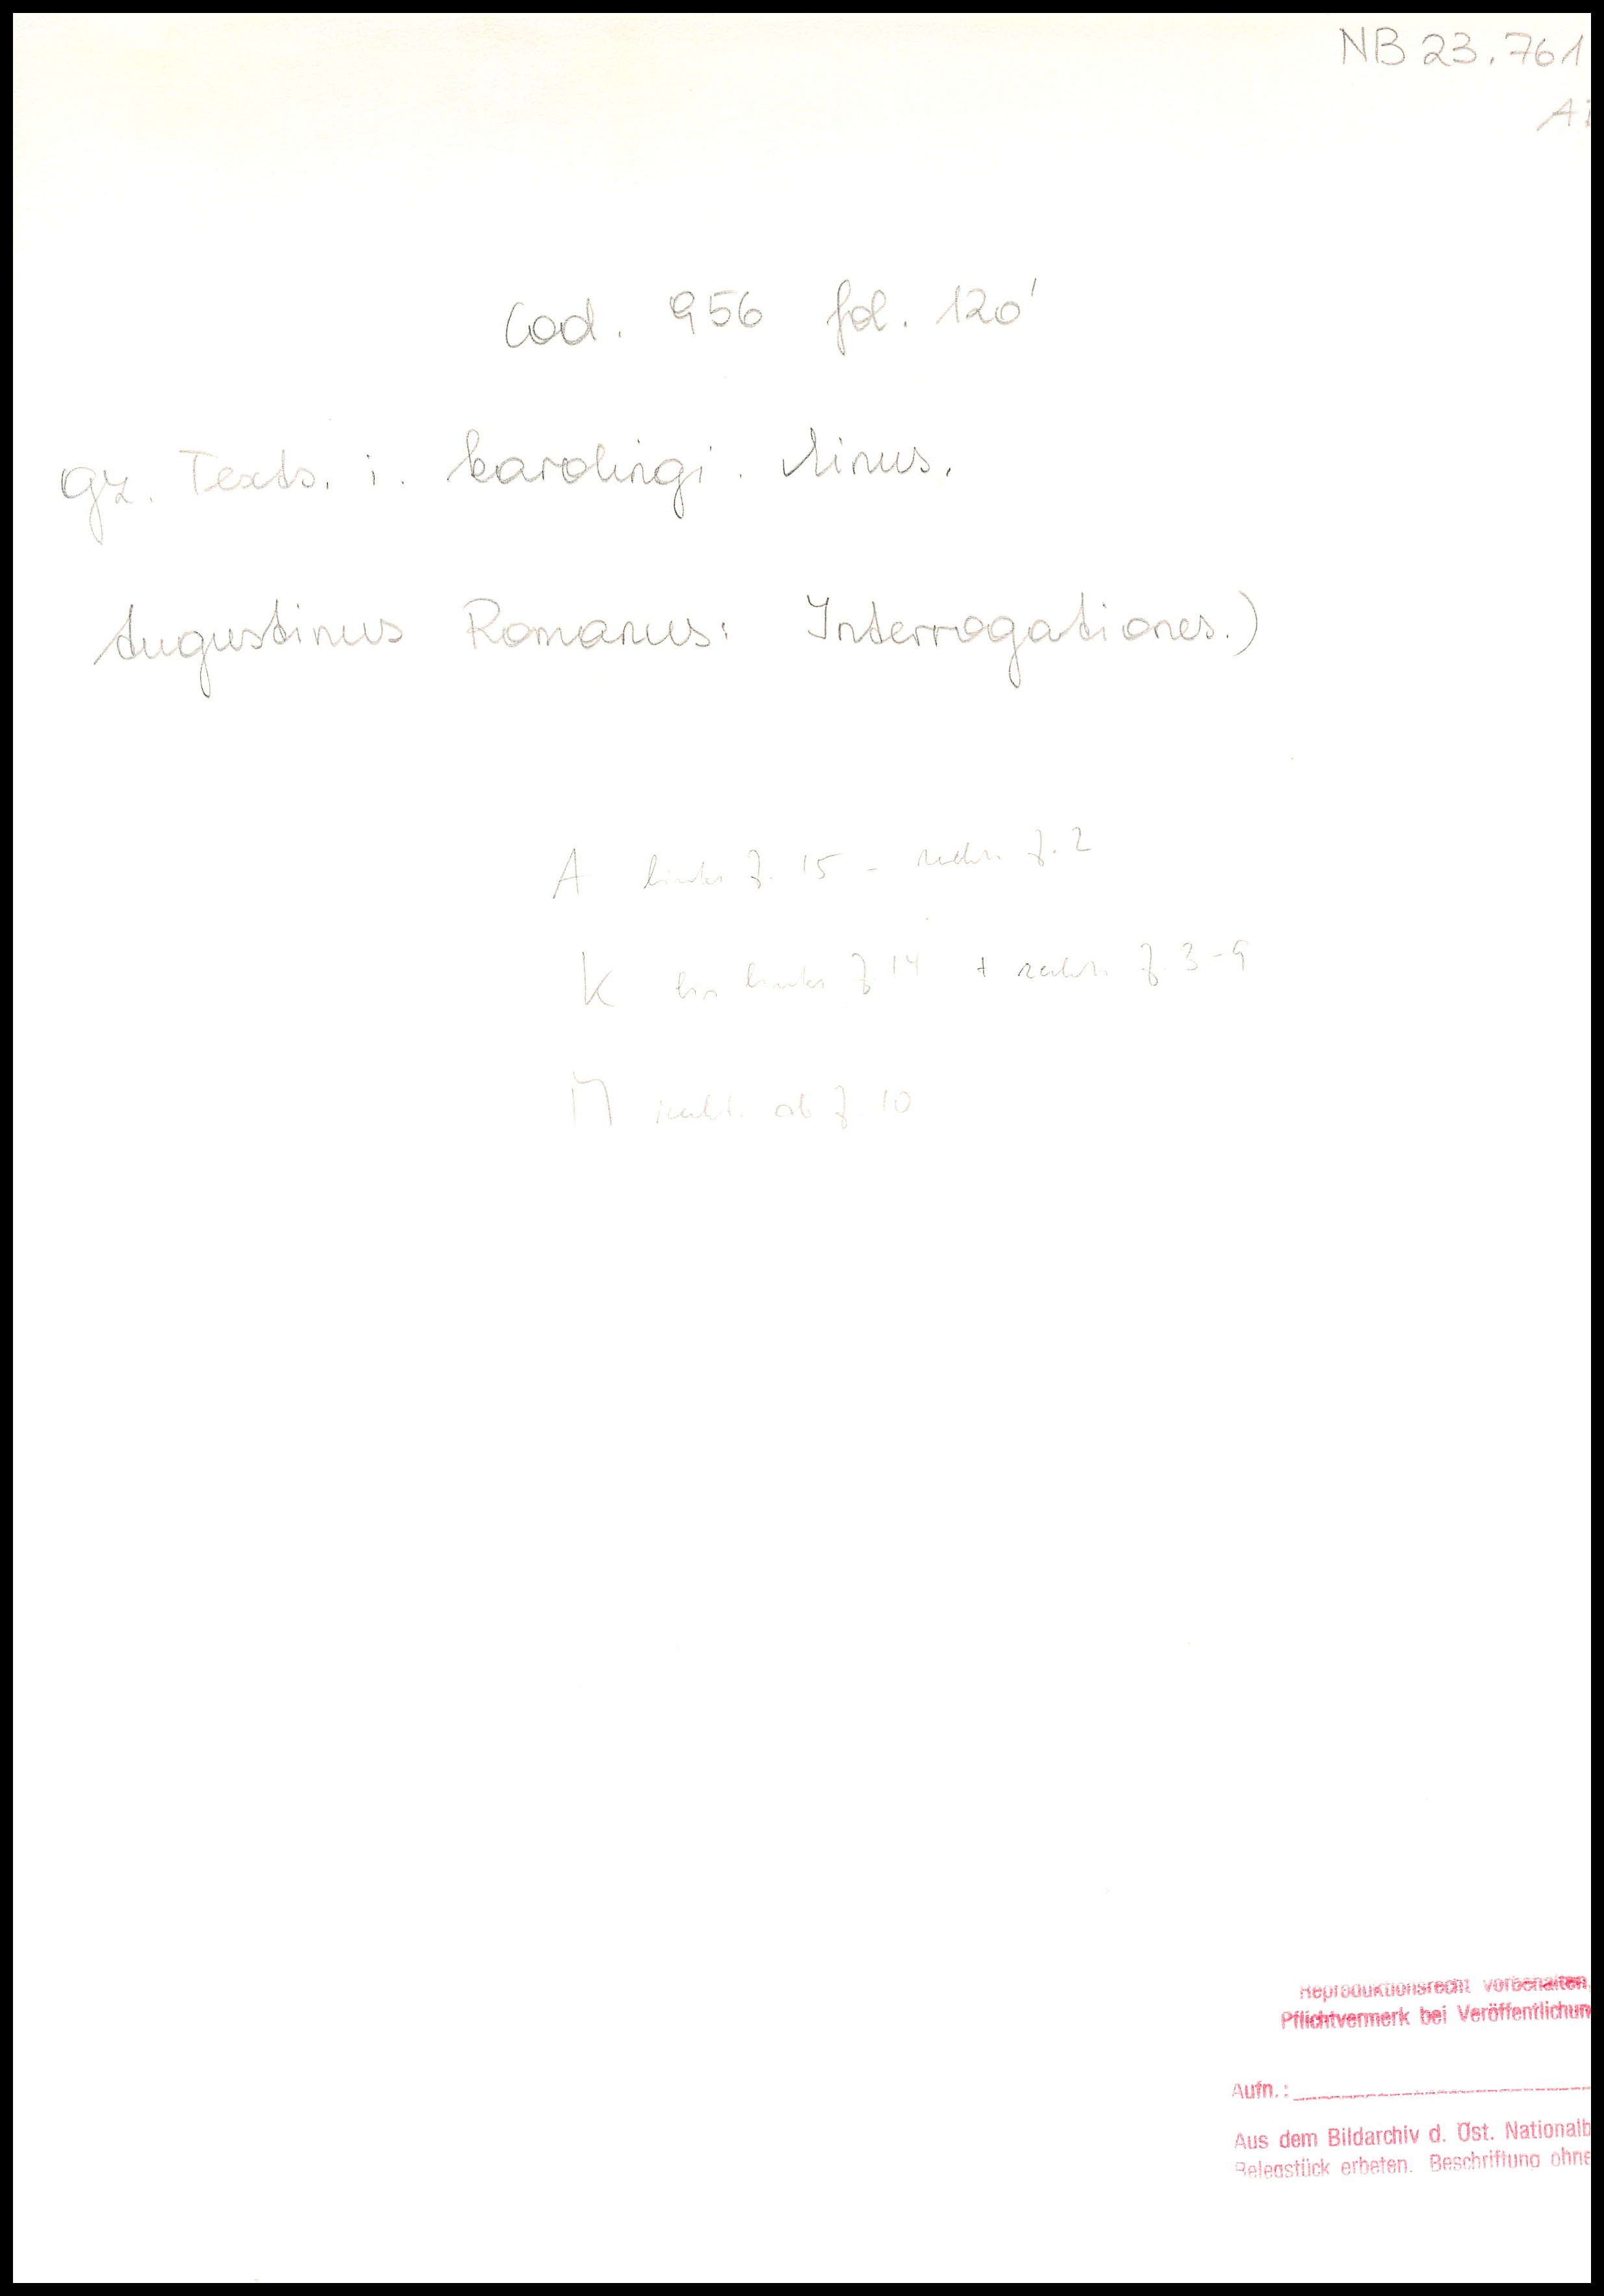 NB 23.761
Cod. 956 fol. 120'
Gz. Texts. i. karolingi. Minus.
Augustinus Romanus: Interrogationes.)
A links Z. 15 - rechts Z. 2
K bis links Z 14 + rechts Z. 3-9
M rechts ab Z. 10
Reproduktionsrecht vorbehalten,
Pflichtvermerk bei Veröffentlichun
Aufn.:
Aus dem Bildarchiv d. Öst. Nationalb
Belegstück erbeten. Beschriftung ohne